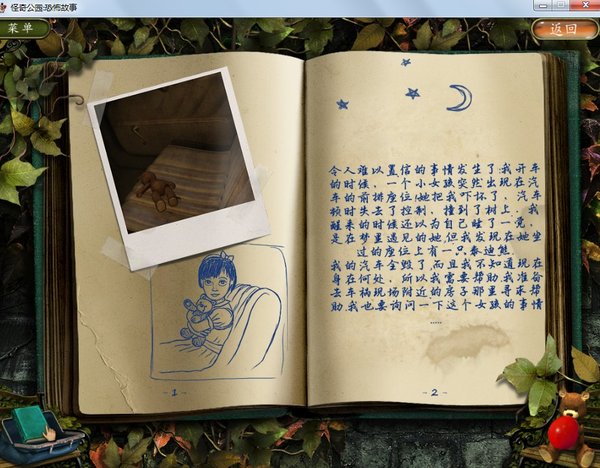 怪奇公园:恐怖故事
菜单
返回
令人难以置信的事情发生了:我开车
的时候，一个小女孩突然出现在汽
车的前排座位!她把我吓坏了，汽车
顿时失去了控制，撞到了树上。我
醒来的时候还以为自己睡了一觉，
是在梦里遇见的她,但我发现在她坐
过的座位上有一只泰迪熊。
我的汽车全毁了,而且我不知道现在
身在何处，所以我需要帮助,我准备
去车祸现场附近的房子那里寻求帮
助,我也要询问一下这个女孩的事情
.....
- 1 -
- 2 -